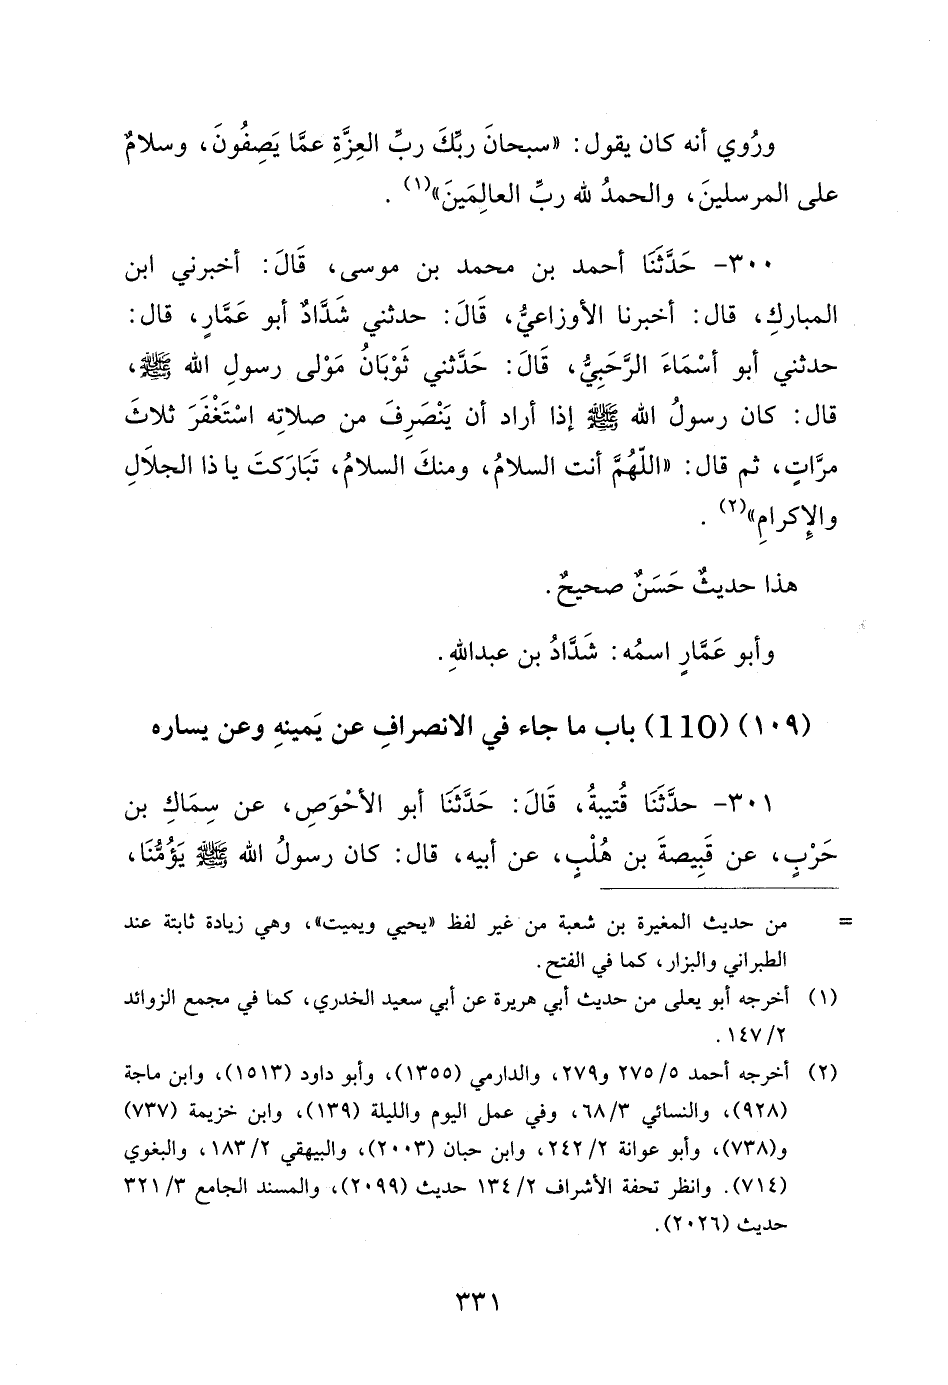 ورُوي أنه كان يقول: «سبحانَ ربِّكَ ربِّ العِزَّةِ عمَّا يَصِفُونَ، وسلامٌ
على المرسلينَ، والحمدُ لله ربِّ العالِمَينَ»(١).
٣٠٠- حَدَّثَنَا أحمد بن محمد بن موسى، قَالَ: أخبرني ابن
المباركِ، قال: أخبرنا الأوزاعيُّ، قَالَ: حدثني شَدَّادٌ أبو عَمَّارٍ، قال:
حدثني أبو أسْمَاءَ الرَّحَبِيُّ، قَالَ: حَدَّثني ثَوْبَانُ مَوْلى رسولِ الله ﷺ،
قال: كان رسولُ الله ﷺ إذا أراد أن يَنْصَرِفَ من صلاتِه اسْتَغْفَرَ ثلاثَ
مرَّاتٍ، ثم قال: «اللّهُمَّ أنت السلامُ، ومنكَ السلامُ، تَبَارَكتَ يا ذا الجلَالِ
والإِكرامِ»(٢).
هذا حديثٌ حَسَنٌ صحيحٌ.
وأبو عَمَّارٍ اسمُه: شَدَّادُ بن عبداللهِ.
(١٠٩) (110) باب ما جاء في الانصرافِ عن يَمينهِ وعن يساره
٣٠١- حدَّثَنَا قُتيبةُ، قَالَ: حَدَّثَنَا أبو الأحْوَصِ، عن سِمَاكِ بن
حَرْبٍ، عن قَبِيصةَ بن هُلْبٍ، عن أبيه، قال: كان رسولُ الله ﷺ يَؤُمُّنَا،
= من حديث المغيرة بن شعبة من غير لفظ «يحيي ويميت»، وهي زيادة ثابتة عند
الطبراني والبزار، كما في الفتح.
(١) أخرجه أبو يعلى من حديث أبي هريرة عن أبي سعيد الخدري، كما في مجمع الزوائد
٢/ ١٤٧.
(٢) أخرجه أحمد ٥/ ٢٧٥ و٢٧٩، والدارمي (١٣٥٥)، وأبو داود (١٥١٣)، وابن ماجة
(٩٢٨)، والنسائي ٣/ ٦٨، وفي عمل اليوم والليلة (١٣٩)، وابن خزيمة (٧٣٧)
و(٧٣٨)، وأبو عوانة ٢/ ٢٤٢، وابن حبان (٢٠٠٣)، والبيهقي ٢/ ١٨٣، والبغوي
(٧١٤). وانظر تحفة الأشراف ٢/ ١٣٤ حديث (٢٠٩٩)، والمسند الجامع ٣/ ٣٢١
حديث (٢٠٢٦).
٣٣١